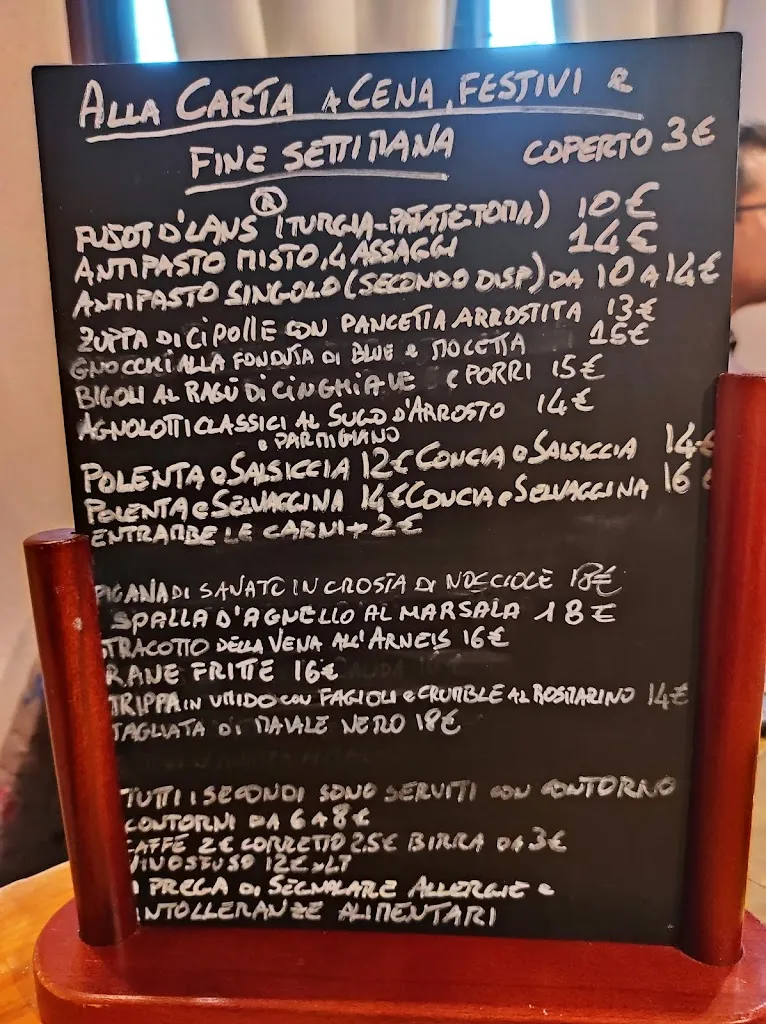 ALLA CARTA A CENA, FESTIVI e
FINE SETTIMANA COPERTO 3€
FUSOT D'LANS (TURGIA-PATATE TOMA) 10€
ANTIPASTO MISTO, 4 ASSAGGI 14€
ANTIPASTO SINGOLO (SECONDO DISP) DA 10 A 14€
ZUPPA DI CIPOLLE CON PANCETTA ARROSTITA 13€
GNOCCHI ALLA FONDUTA DI BLUE e MOCETTA 15€
BIGOLI AL RAGÙ DI CINGHIALE e PORRI 15€
AGNOLOTTI CLASSICI AL SUGO D'ARROSTO 14€
e PARMIGIANO
POLENTA e SALSICCIA 12€ CONCIA e SALSICCIA 14€
POLENTA e SELVAGGINA 14€ CONCIA e SELVAGGINA 16€
ENTRAMBE LE CARNI + 2€
PICANA DI SANATO IN CROSTA DI NOCCIOLE 18€
SPALLA D'AGNELLO AL MARSALA 18€
STRACOTTO DELLA VENA ALL'ARNEIS 16€
RANE FRITTE 16€
TRIPPA IN UMIDO CON FAGIOLI e CRUMBLE AL ROSMARINO 14€
TAGLIATA DI MAIALE NERO 18€
TUTTI I SECONDI SONO SERVITI CON CONTORNO
CONTORNI DA 6 A 8€
CAFFE 2€ CORRETTO 2.5€ BIRRA DA 3€
VINO SFUSO 12€ x LT
SI PREGA DI SEGNALARE ALLERGIE e
INTOLLERANZE ALIMENTARI